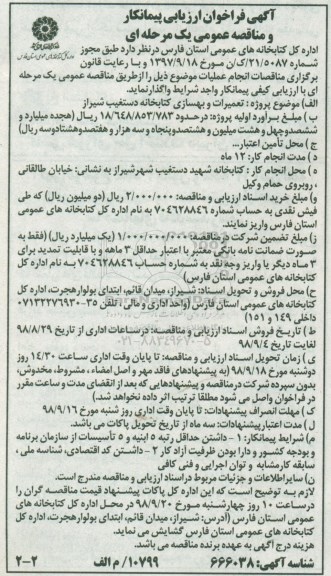 آگهی فراخوان ارزیابی پیمانکار
و مناقصه عمومی یک مرحله ای
اداره کل کتابخانه های عمومی استان فارس درنظر دارد طبق مجوز
شماره ۲۱/۵۰۸۷/ک/ن مورخ ۱۳۹۷/۹/۱۸ و با رعایت قانون
برگزاری مناقصات انجام عملیات موضوع ذیل را ازطریق مناقصه عمومی یک مرحله
ای با ارزیابی کیفی پیمانکار واجد شرایط واگذارنماید.
الف) موضوع پروژه : تعمیرات و بهسازی کتابخانه دستغیب شیراز
ب) مبلغ برآورد اولیه پروژه: درحدود ۱۸/۶۴۸/۸۵۳/۷۸۳ ریال (هجده میلیارد و
ششصدوچهل و هشت میلیون و هشتصدوپنجاه و سه هزار و هفتصدوهشتادوسه ریال)
ج) محل تأمین اعتبار...
د) مدت انجام کار: ۱۲ ماه
ه) محل انجام کار : کتابخانه شهید دستغیب شهرشیراز به نشانی: خیابان طالقانی
، روبروی حمام وکیل
و) مبلغ خرید اسناد ارزیابی و مناقصه: ۲/۰۰۰/۰۰۰ ریال (دو میلیون ریال) که طی
فیش نقدی به حساب شماره ۷۰۴۶۲۸۸۴۶ به نام اداره کل کتابخانه های عمومی
استان فارس واریز نمایند.
ز) مبلغ تضمین شرکت درمناقصه: ۱/۰۰۰/۰۰۰/۰۰۰ (یک میلیارد ریال) (فقط به
صورت ضمانت نامه بانکی معتبر با اعتبار حداقل ۳ ماهه و با قابلیت تمدید برای
۳ ماه دیگر یا واریز وجه نقد به شماره حساب ۷۰۴۶۲۸۸۴۶ به نام اداره کل
کتابخانه های عمومی استان فارس)
ح) محل فروش و تحویل اسناد: شیراز، میدان قائم، ابتدای بولوارهجرت، اداره کل
کتابخانه های عمومی استان فارس (واحد اداری و مالی ، تلفن ۳۵-۰۷۱۳۲۲۷۶۹۳۰
داخلی ۱۴۹ و ۱۵۱)
ط) تاریخ فروش اسناد ارزیابی و مناقصه: درساعات اداری از تاریخ ۹۸/۸/۲۹
لغایت تاریخ ۹۸/۹/۴
ی) زمان تحویل اسناد ارزیابی و مناقصه: تا پایان وقت اداری ساعت ۱۴/۳۰ روز
دوشنبه مورخ ۹۸/۹/۱۸ (به پیشنهادهای فاقد مهر و اصل امضاء ، مشروط، مخدوش،
بدون سپرده شرکت درمناقصه و پیشنهادهایی که بعد از انقضای مدت و ساعت مقرر
در فراخوان واصل می شود مطلقا ترتیب اثر داده نخواهد شد.)
ک) مهلت انصراف پیشنهادات: تا پایان وقت اداری روز شنبه مورخ ۹۸/۹/۱۶
ل) مدت اعتبارپیشنهادات: سه ماه از تاریخ تحویل پاکات می باشد.
م) شرایط پیمانکار: ۱ - داشتن حداقل رتبه ۵ ابنیه و ۵ تأسیسات از سازمان برنامه
و بودجه کشور و دارا بودن ظرفیت آزاد کار ۲ - داشتن کد اقتصادی، شناسه ملی ،
سابقه کارمشابه و توان اجرایی و فنی کافی
ن) سایراطلاعات و جزئیات مربوط دراسناد ارزیابی و مناقصه مندرج است.
لازم به توضیح است که این اداره کل پاکات پیشنهاد قیمت مناقصه گران را
درساعت ۱۰ روز چهارشنبه مورخ ۹۸/۹/۲۰ در محل اداره کل کتابخانه های
عمومی استان فارس (آدرس: شیراز، میدان قائم، ابتدای بولوارهجرت، اداره کل
کتابخانه های عمومی استان فارس گشایش می نماید.
هزینه درج آگهی به عهده برنده مناقصه می باشد.
شناسه آگهی: ۶۶۶۰۳۸ ۱۰۷۹۹/ م الف ۲-۲